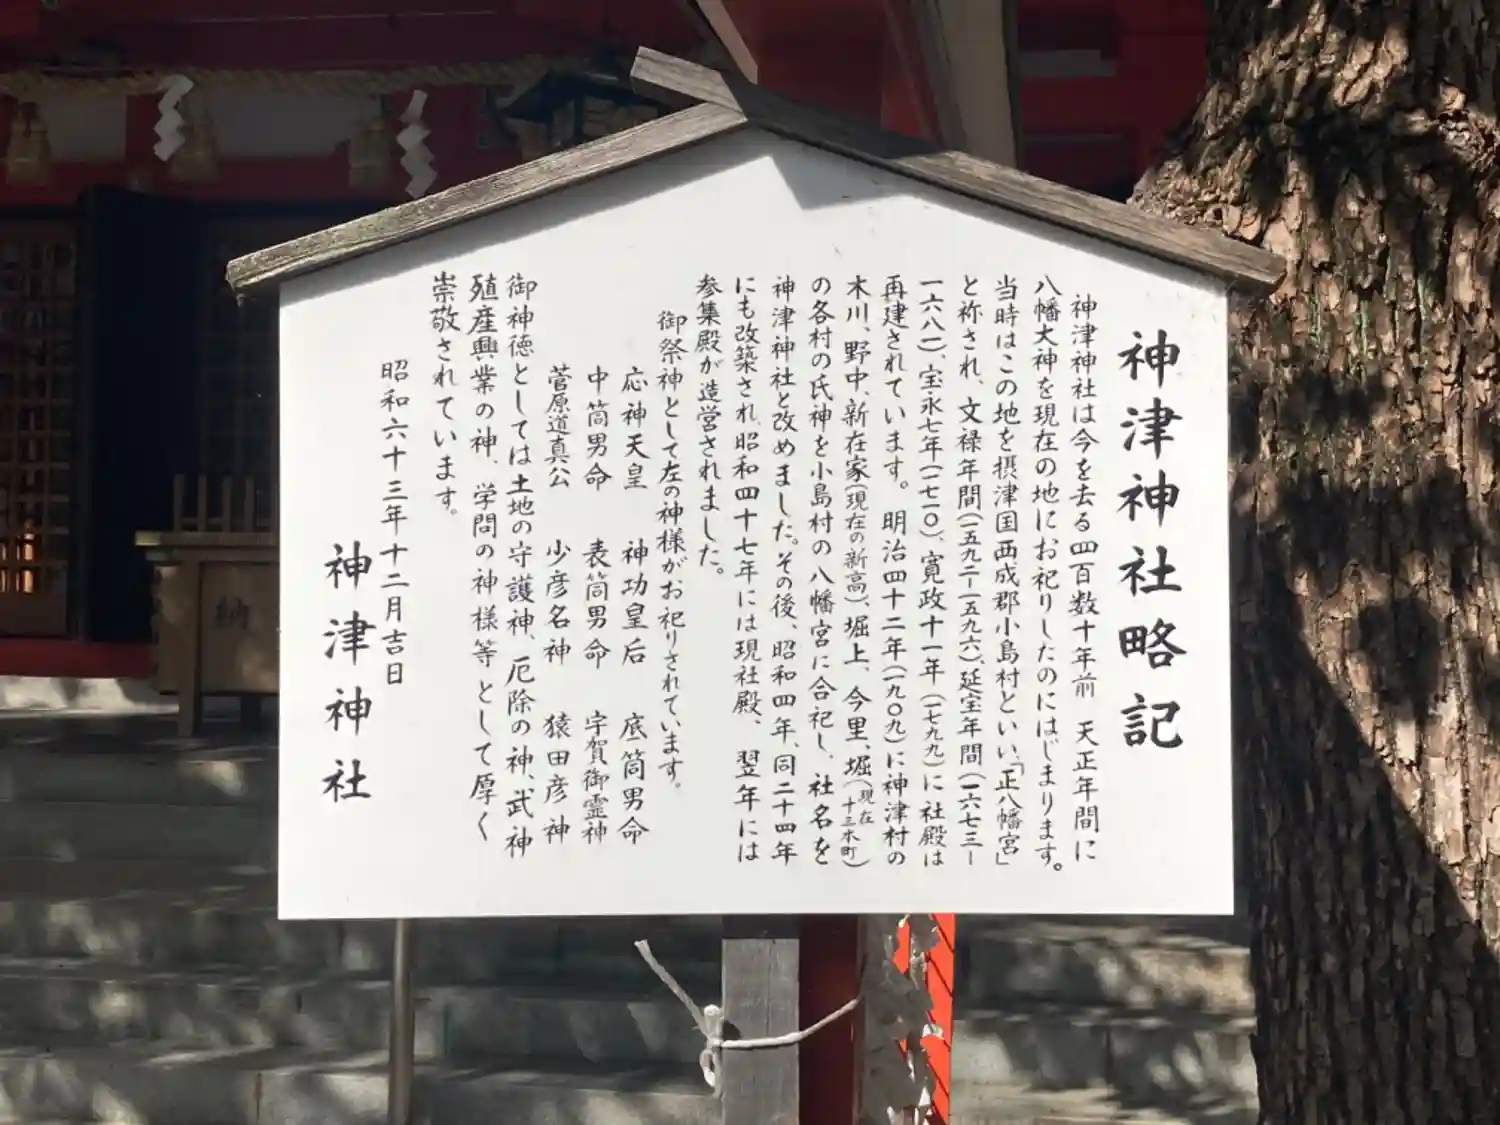 神津神社略記
神津神社は今を去る四百数十年前 天正年間に
八幡大神を現在の地にお祀りしたのにはじまります。
当時はこの地を摂津国西成郡小島村といい、「正八幡宮」
と称され、文禄年間(一五九二ー一五九六)、延宝年間(一六七三ー
一六八一)、宝永七年(一七一〇)、寛政十一年(一七九九)に社殿は
再建されています。明治四十二年(一九〇九)に神津村の
木川、野中、新在家(現在の新高)、堀上、今里、堀(現在十三本町)
の各村の氏神を小島村の八幡宮に合祀し、社名を
神津神社と改めました。その後、昭和四年、同二十四年
にも改築され、昭和四十七年には現社殿、翌年には
参集殿が造営されました。
御祭神として左の神様がお祀りされています。
応神天皇 神功皇后 底筒男命
中筒男命 表筒男命 宇賀御霊神
菅原道真公 少彦名神 猿田彦神
御神徳としては土地の守護神、厄除の神、武神
殖産興業の神、学問の神様等として厚く
崇敬されています。
昭和六十三年十二月吉日
神津神社
納